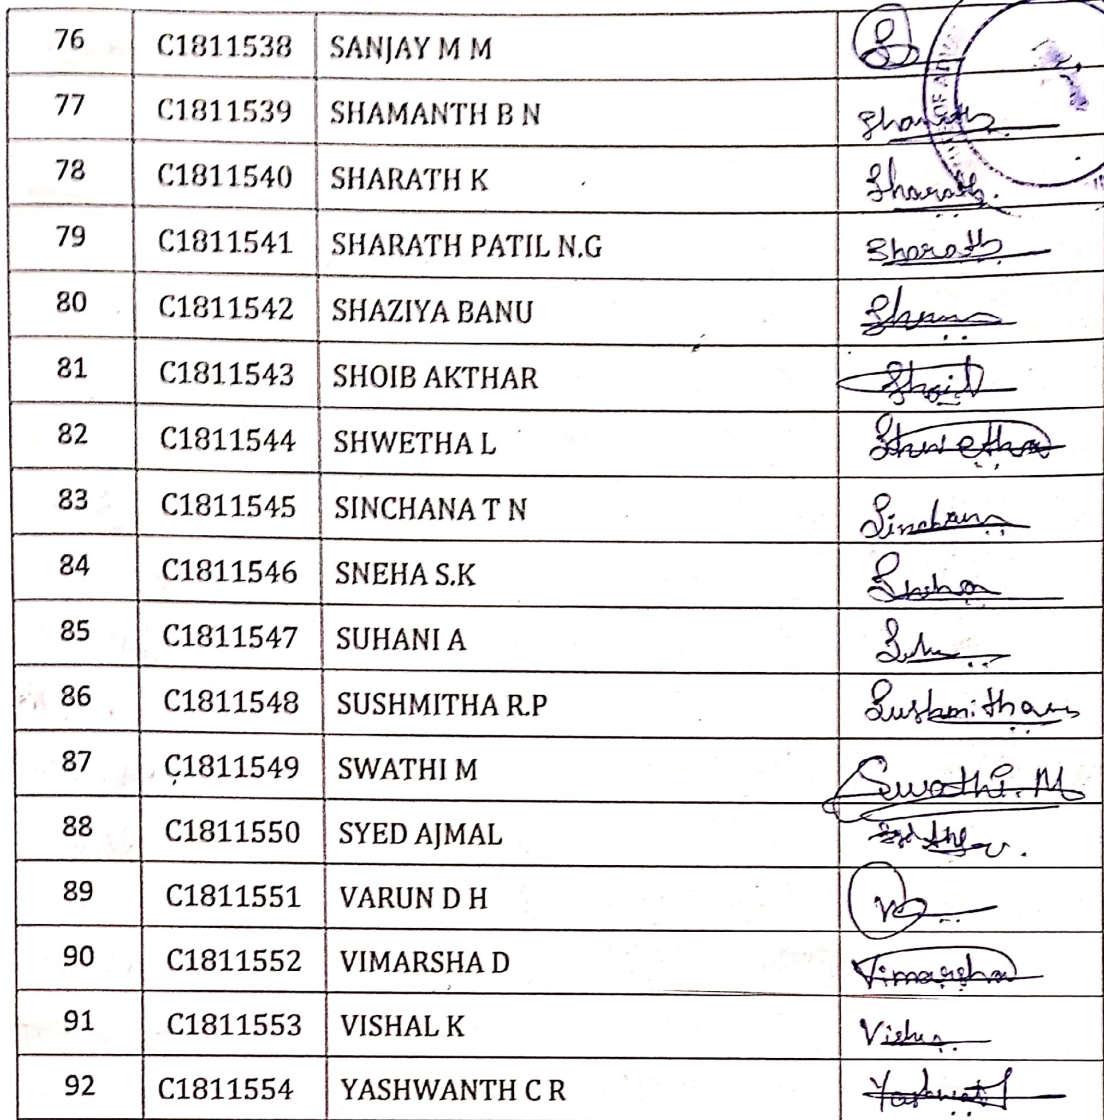 76 C1811538 SANJAY M M
77 C1811539 SHAMANTH B N
78 C1811540 SHARATH K Sharath.
79 C1811541 SHARATH PATIL N.G Sharath
80 C1811542 SHAZIYA BANU
81 C1811543 SHOIB AKTHAR Shoib
82 C1811544 SHWETHA L Shwetha
83 C1811545 SINCHANA T N Sinchana
84 C1811546 SNEHA S.K Sneha
85 C1811547 SUHANI A
86 C1811548 SUSHMITHA R.P
87 C1811549 SWATHI M Swathi. M
88 C1811550 SYED AJMAL
89 C1811551 VARUN D H
90 C1811552 VIMARSHA D Vimarsha
91 C1811553 VISHAL K
92 C1811554 YASHWANTH C R